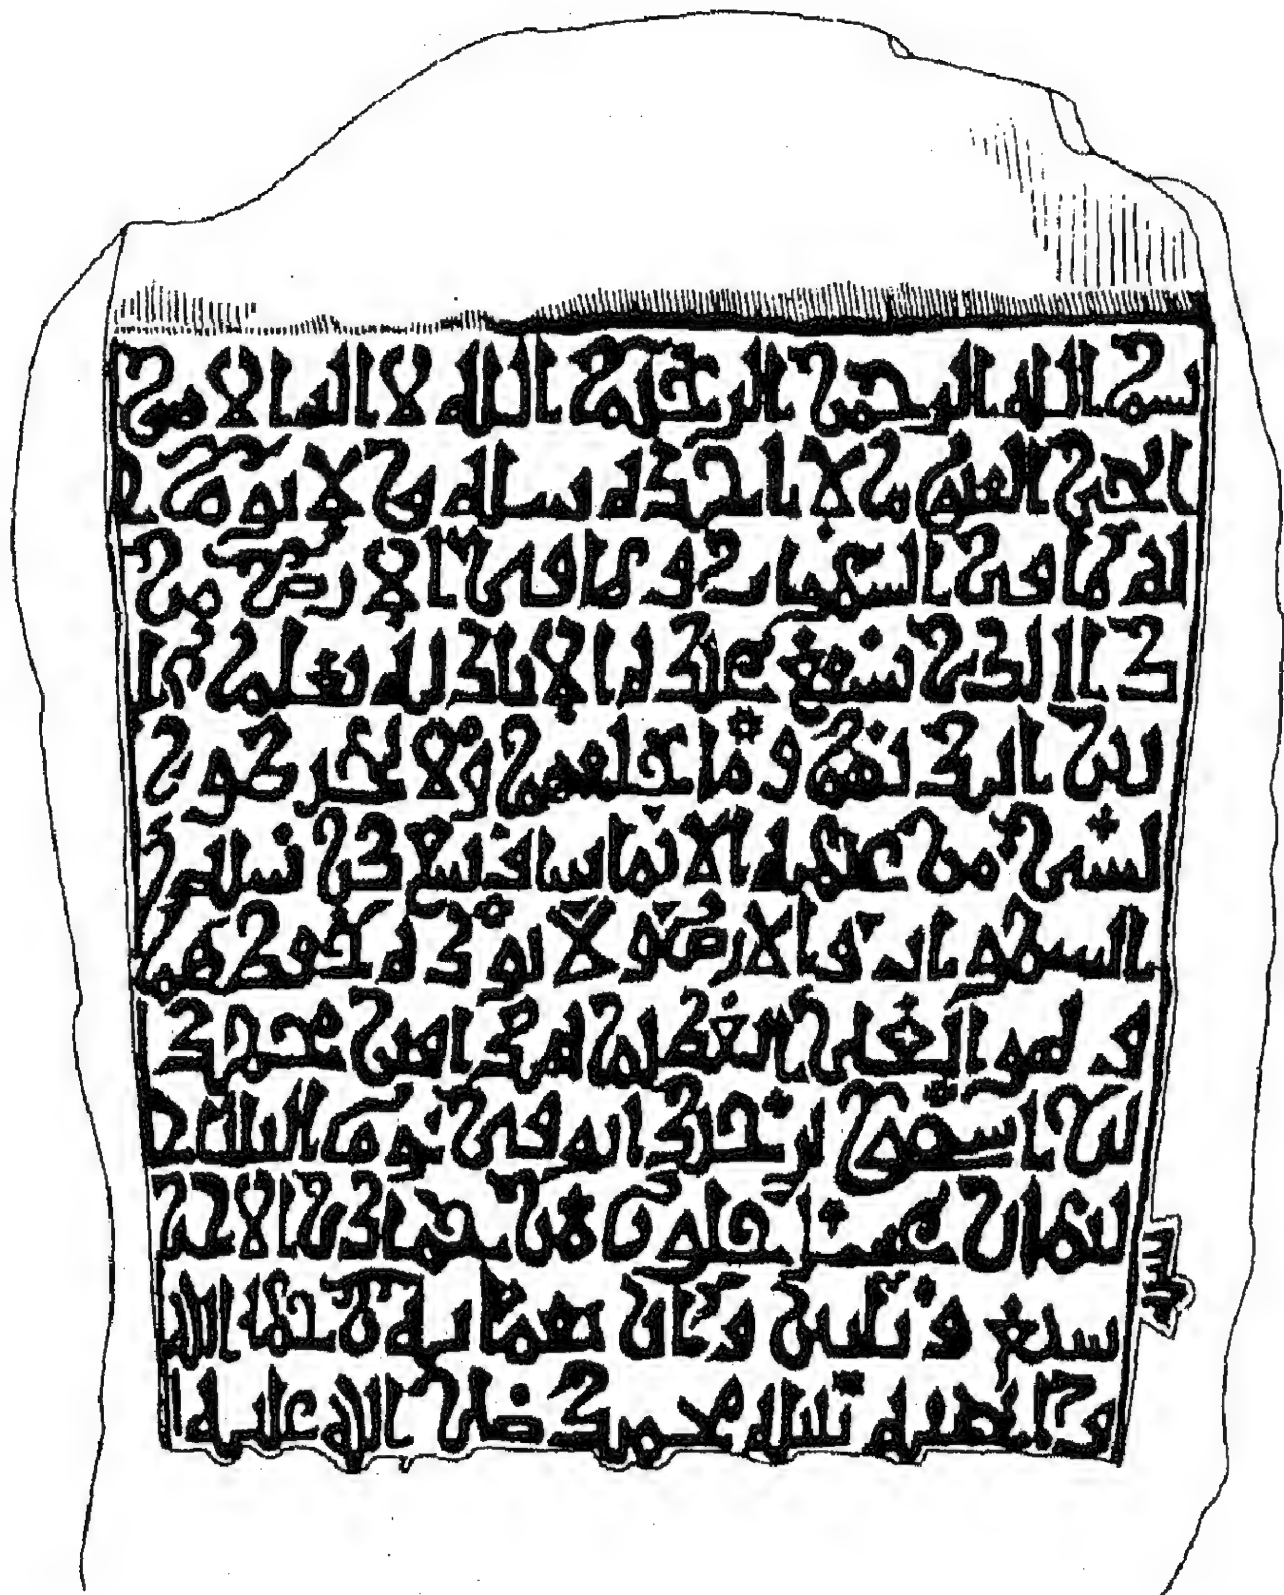 بسم الله الرحمن الرحيم الله لا اله الا هو
الحي القيوم لا تاخذه سنه ولا نوم
له ما في السموات وما في الارض من
ذا الذي يشفع عنده الا باذنه يعلم ما
بين ايديهم وما خلفهم ولا يحيطون
بشي من علمه الا بما شا وسع كرسيه
السموات والارض ولا يوده حفظهما
و هو العلي العظيم هذا محمد
بن اسحق توفي يوم الثلاثا
لثمان عشر خلون من جمادى الاخر
سنه سبع وثلثين رحمه الله
و الحقه بنبيه محمد صلى الله عليه